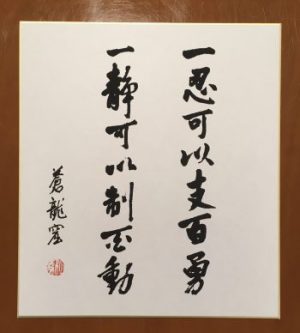 一忍可以支百勇
一静可以制百動
蒼龍窟